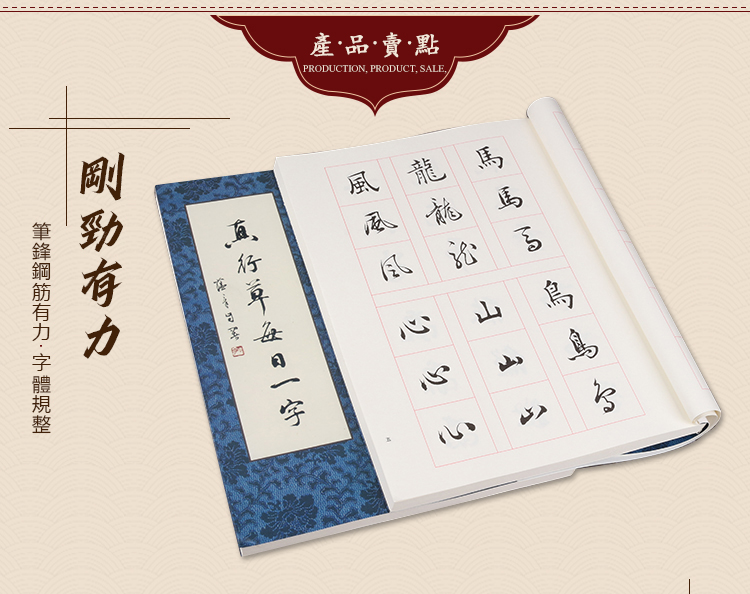 產·品·賣·點
PRODUCTION, PRODUCT, SALE,
剛勁有力
筆鋒鋼筋有力·字體規整
真行草每日一字
馬馬馬
龍龍龍
風風風
鳥鳥鳥
山山山
心心心